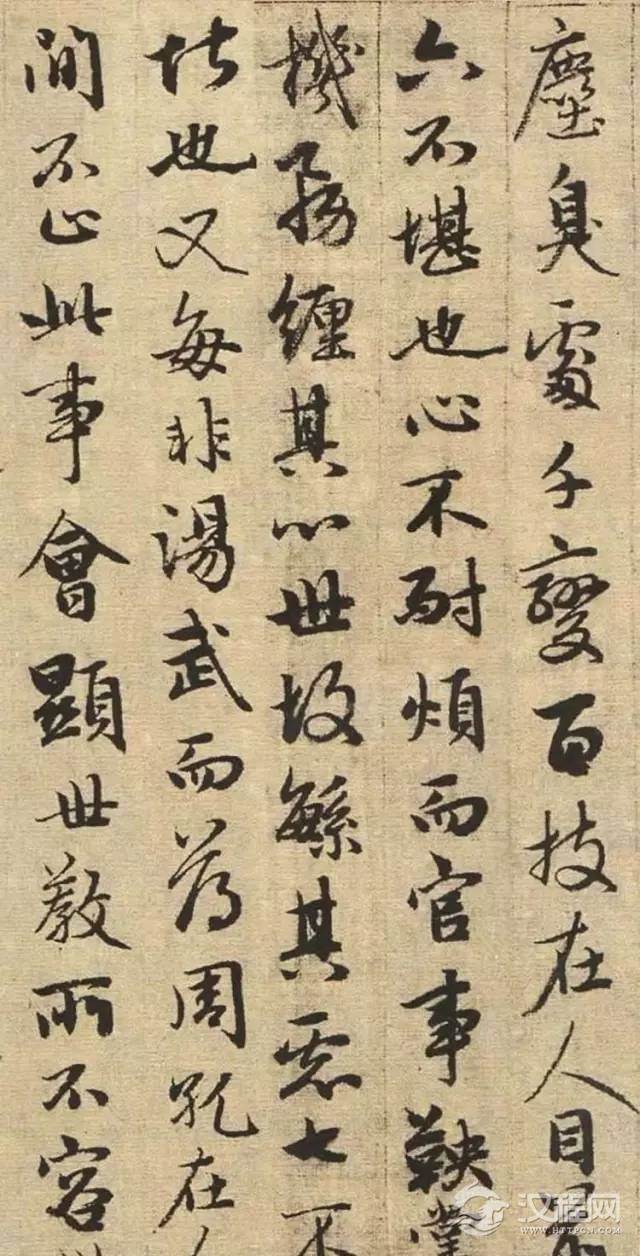 塵臭處千變百技在人目
六不堪也心不耐煩而官事鞅掌
機務纏其心世故繁其慮七不
堪也又每非湯武而薄周孔在人
間不止此事會顯世教所不容
汉程网
HTTPCN.COM